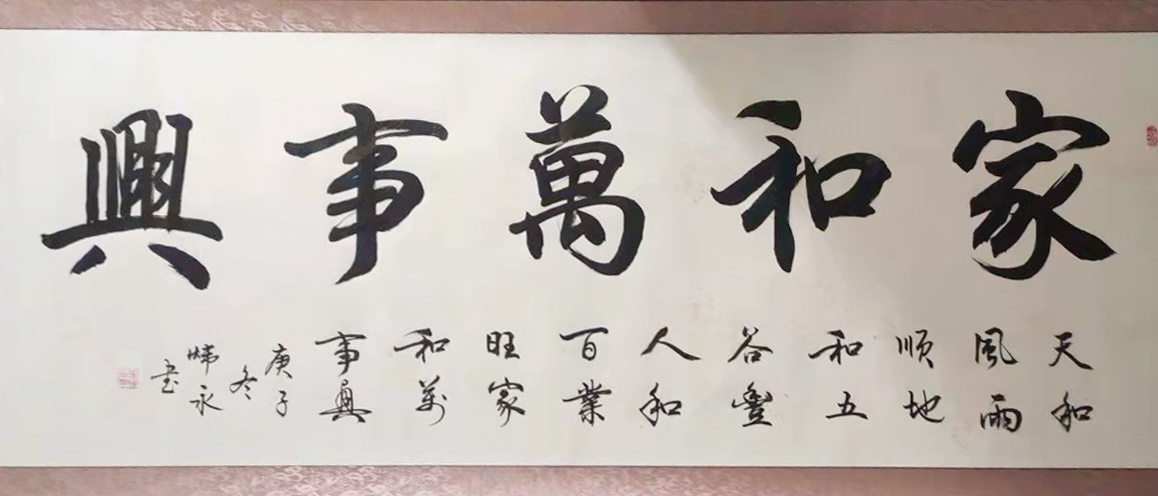 家和萬事興
天和
風雨
順地
和五
谷豐
人和
百業
旺家
和萬
事興
庚子
冬
永
书